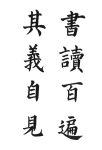 書讀百遍
其義自見